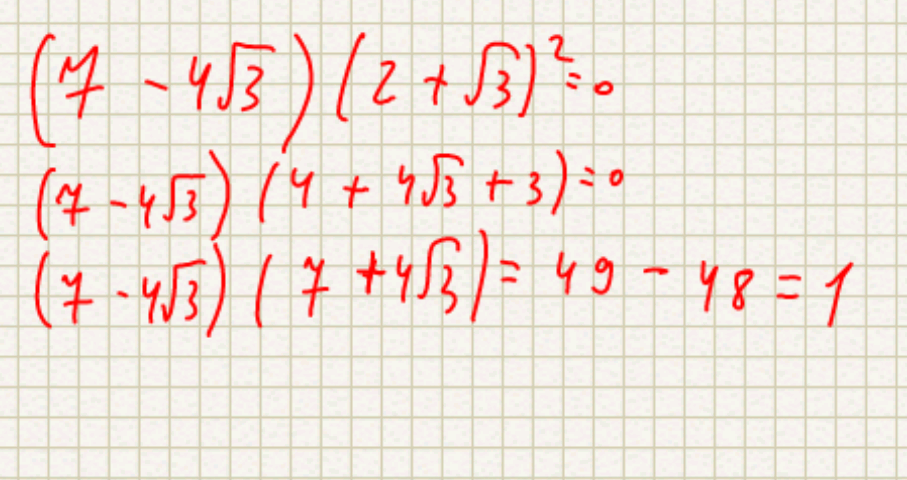 (7 - 4√3) (2 + √3)² = 0
(7 - 4√3) (4 + 4√3 + 3) = 0
(7 - 4√3) (7 + 4√3) = 49 - 48 = 1